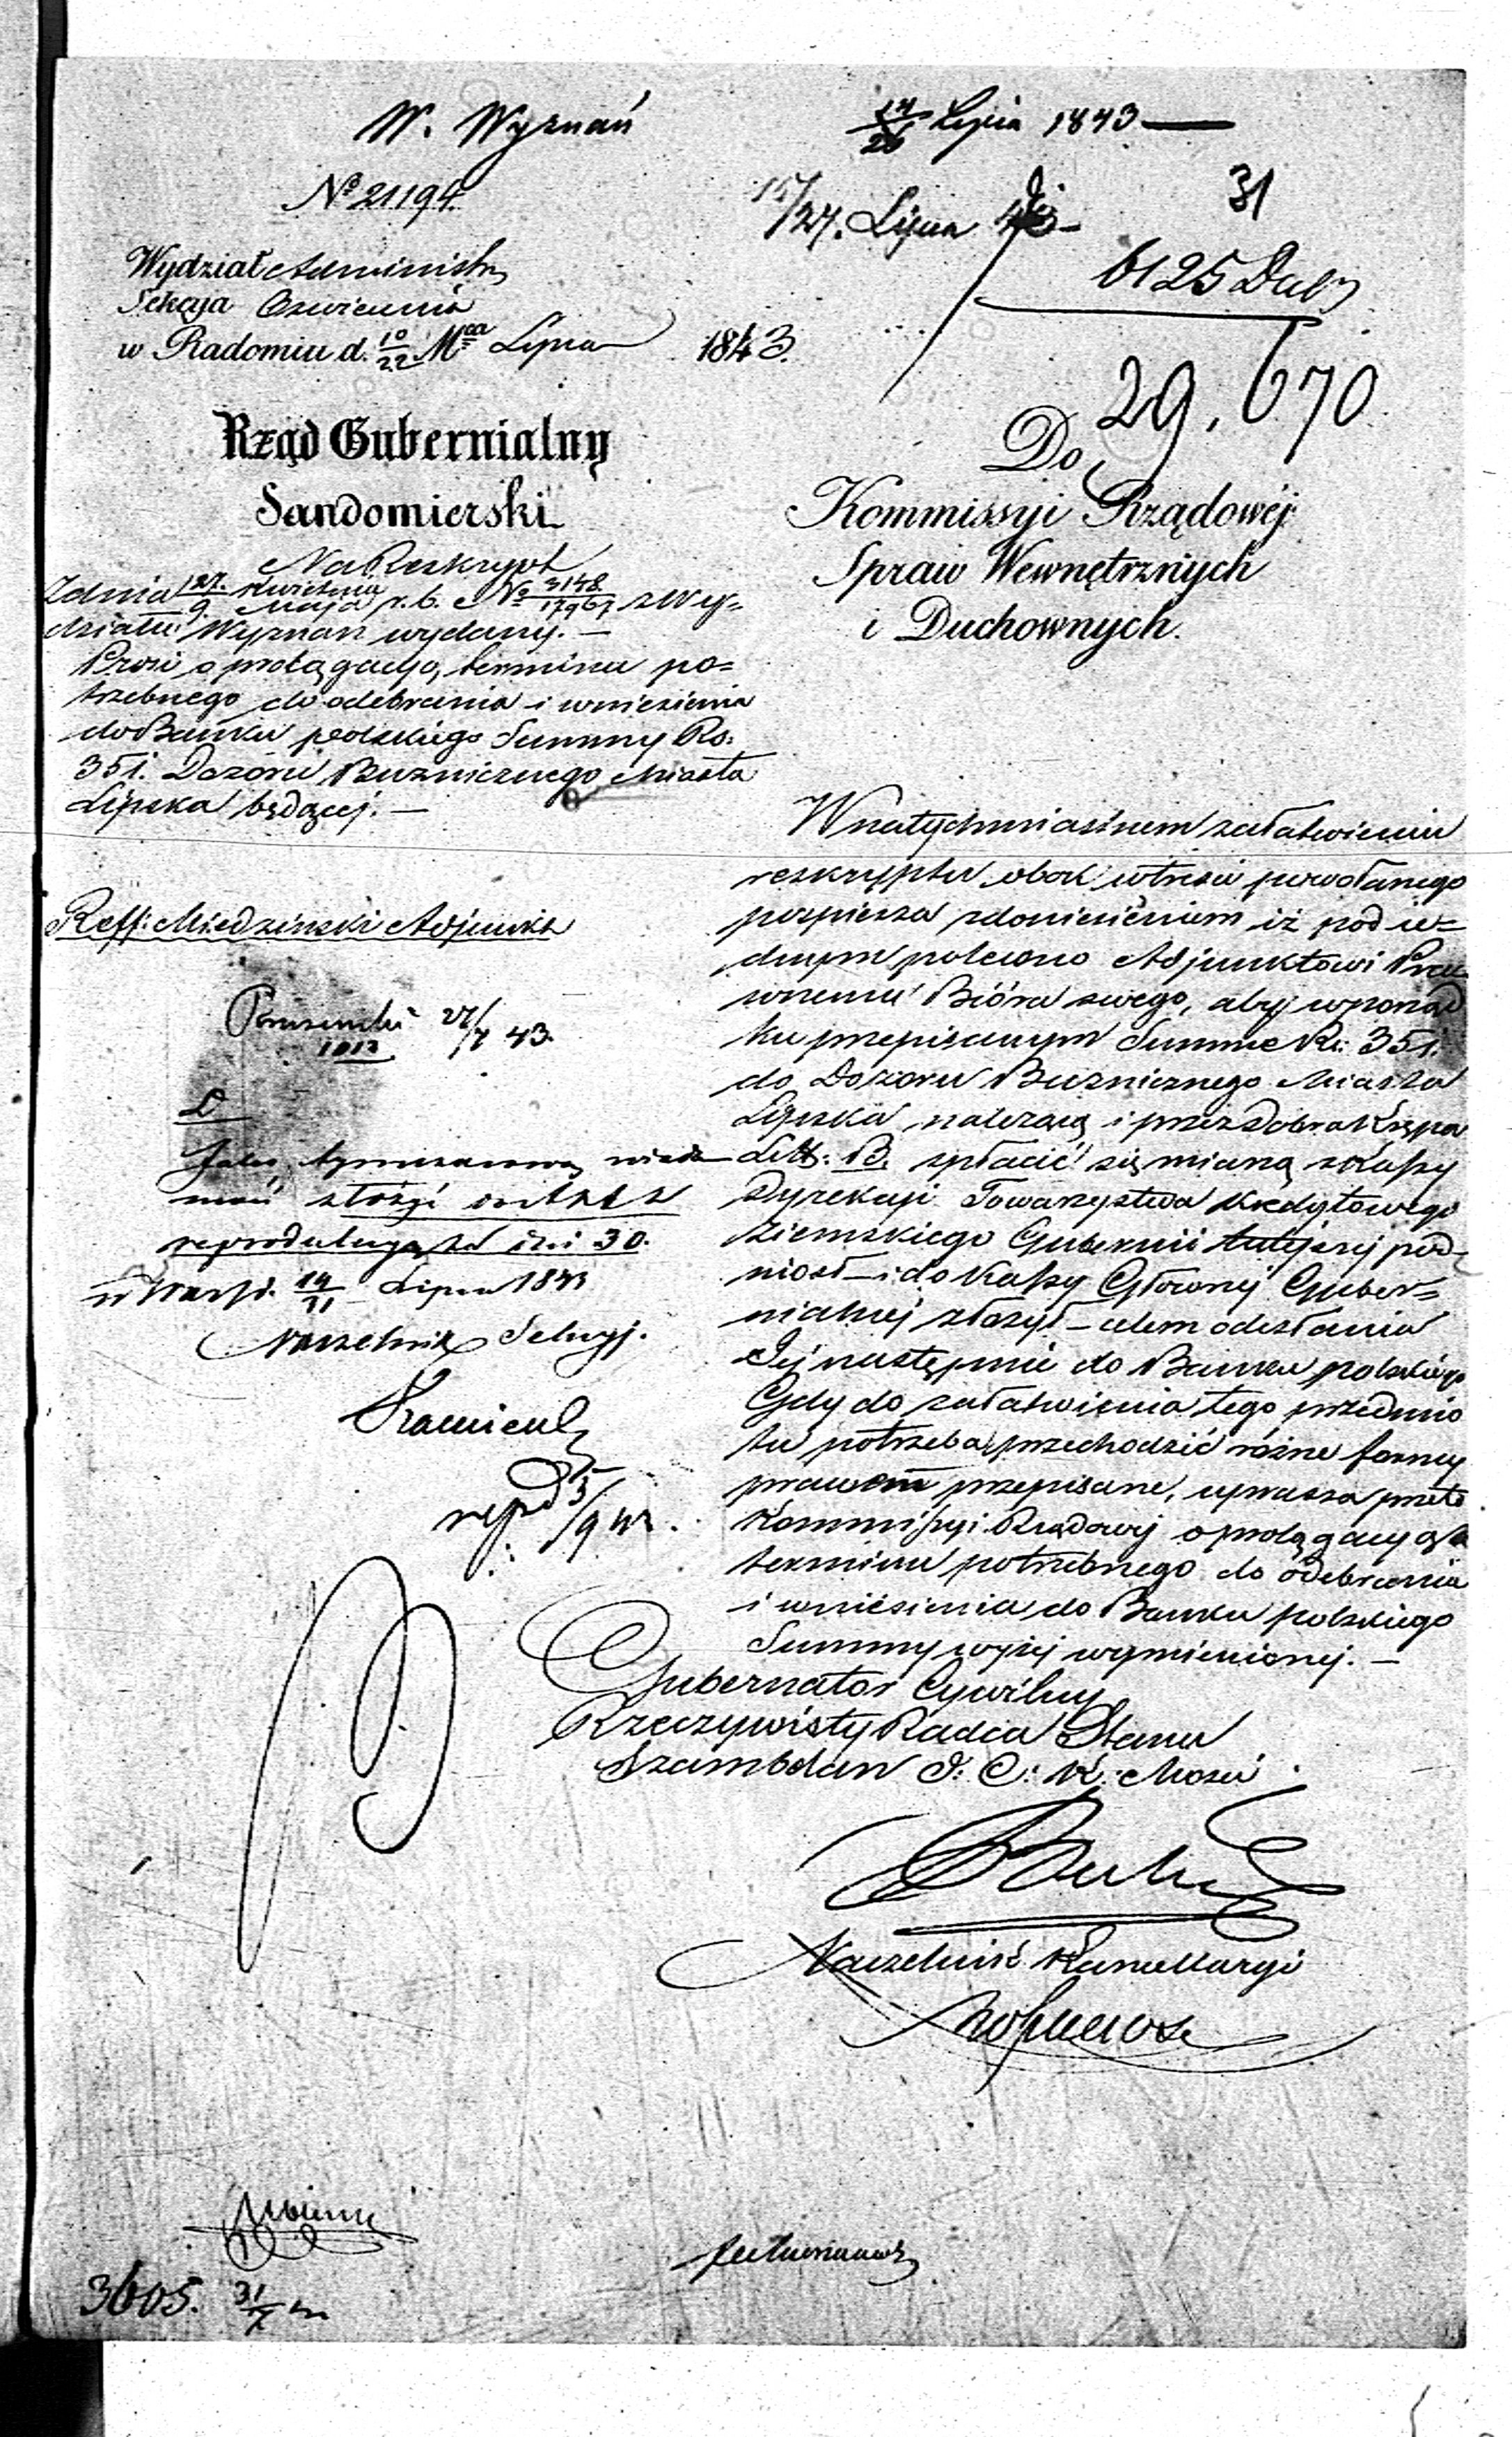 W. Wyznań
14/26 Lipca 1843
No 21194.
15/27. Lipca 43
31
Wydział Administr.
Sekcya Oswiecenia
w Radomiu d. 10/22 Mca Lipca 1843.
6125
29.670
Rząd Gubernialny
Sandomierski
Do
Kommissyi Rządowéj
Spraw Wewnętrznych
i Duchownych.
Na Reskrypt
Z dnia 27. Kwietnia/9. Maja r. b. No 3148/17967 z Wy=
działu Wyznań wydany. —
Prosi o prolągacyą terminu po=
trzebnego do odebrania i wniesienia
do Banku polskiego Summy Rs.
351. Dozoru Bużnicznego Miasta
Lipska będącej. —
Reff: Miedzinski Adjunkt
27/7 43.
1013
Jako tymczasową wiado
mość złożyć do akt z
reprodukcyą za dni 30.
w Warsz. 19/31 Lipca 1843
Naczelnik Sekcyj.
W natychmiastnem załatwieniu
reskryptu obok w treści powołanego
pospiesza z doniesieniem iż pod ie=
dnym polecono Adjunktowi Pra
wnemu Bióra swego, aby w porząd
ku przepisanym Summę Rs: 351.
do Dozoru Bużnicznego Miasta
Lipska należącą i przez Dobra Krępa
Litt: B. spłacić się mianą z Kassy
Dyrekcyi Towarzystwa Kredytowego
Ziemskiego Gubernii tutejszej pod=
niosł — i do Kassy Głównej Guber=
nialnej złożył — celem odesłania
Jej następnie do Banku polskiego
Gdy do załatwienia tego przedmio
tu potrzeba przechodzić różne formy
prawem przepisane, uprasza przeto
Kommissyi Rządowej o prolągacyą
terminu potrzebnego do odebrania
i wniesienia do Banku polskiego
Summy wyżej wymienionej. —
Gubernator Cywilny
Rzeczywisty Radca Stanu
Szambelan J: C: K: Mości
Naczelnik Kancellaryi
3605. 31/7